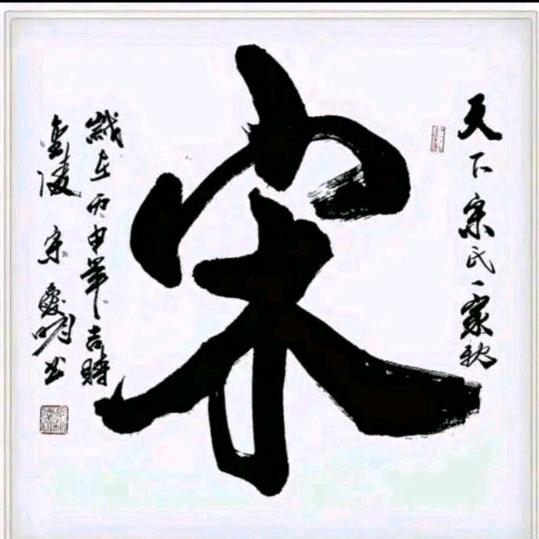 天下宋氏一家
宋
歲在丙申年吉時
金陵 宋愛明书